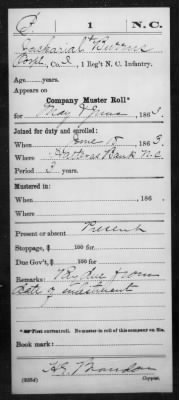 B. 1 N.C.
Zachariah Burns
Co. I, 1 Reg't N. C. Infantry.
Age years.
Appears on
Company Muster Roll*
for May & June, 1863
Joined for duty and enrolled:
When June 15, 1863
Where Hatteras Bank N.C.
Period 3 years.
Mustered in:
When , 186
Where
Present or absent Present
Stoppage, $ 100 for
Due Gov't, $ 100 for
Remarks: Pay due from
date of enlistment
* First ourroll. No muster-in roll of this company on file.
Book mark:
(858d) Copyist.